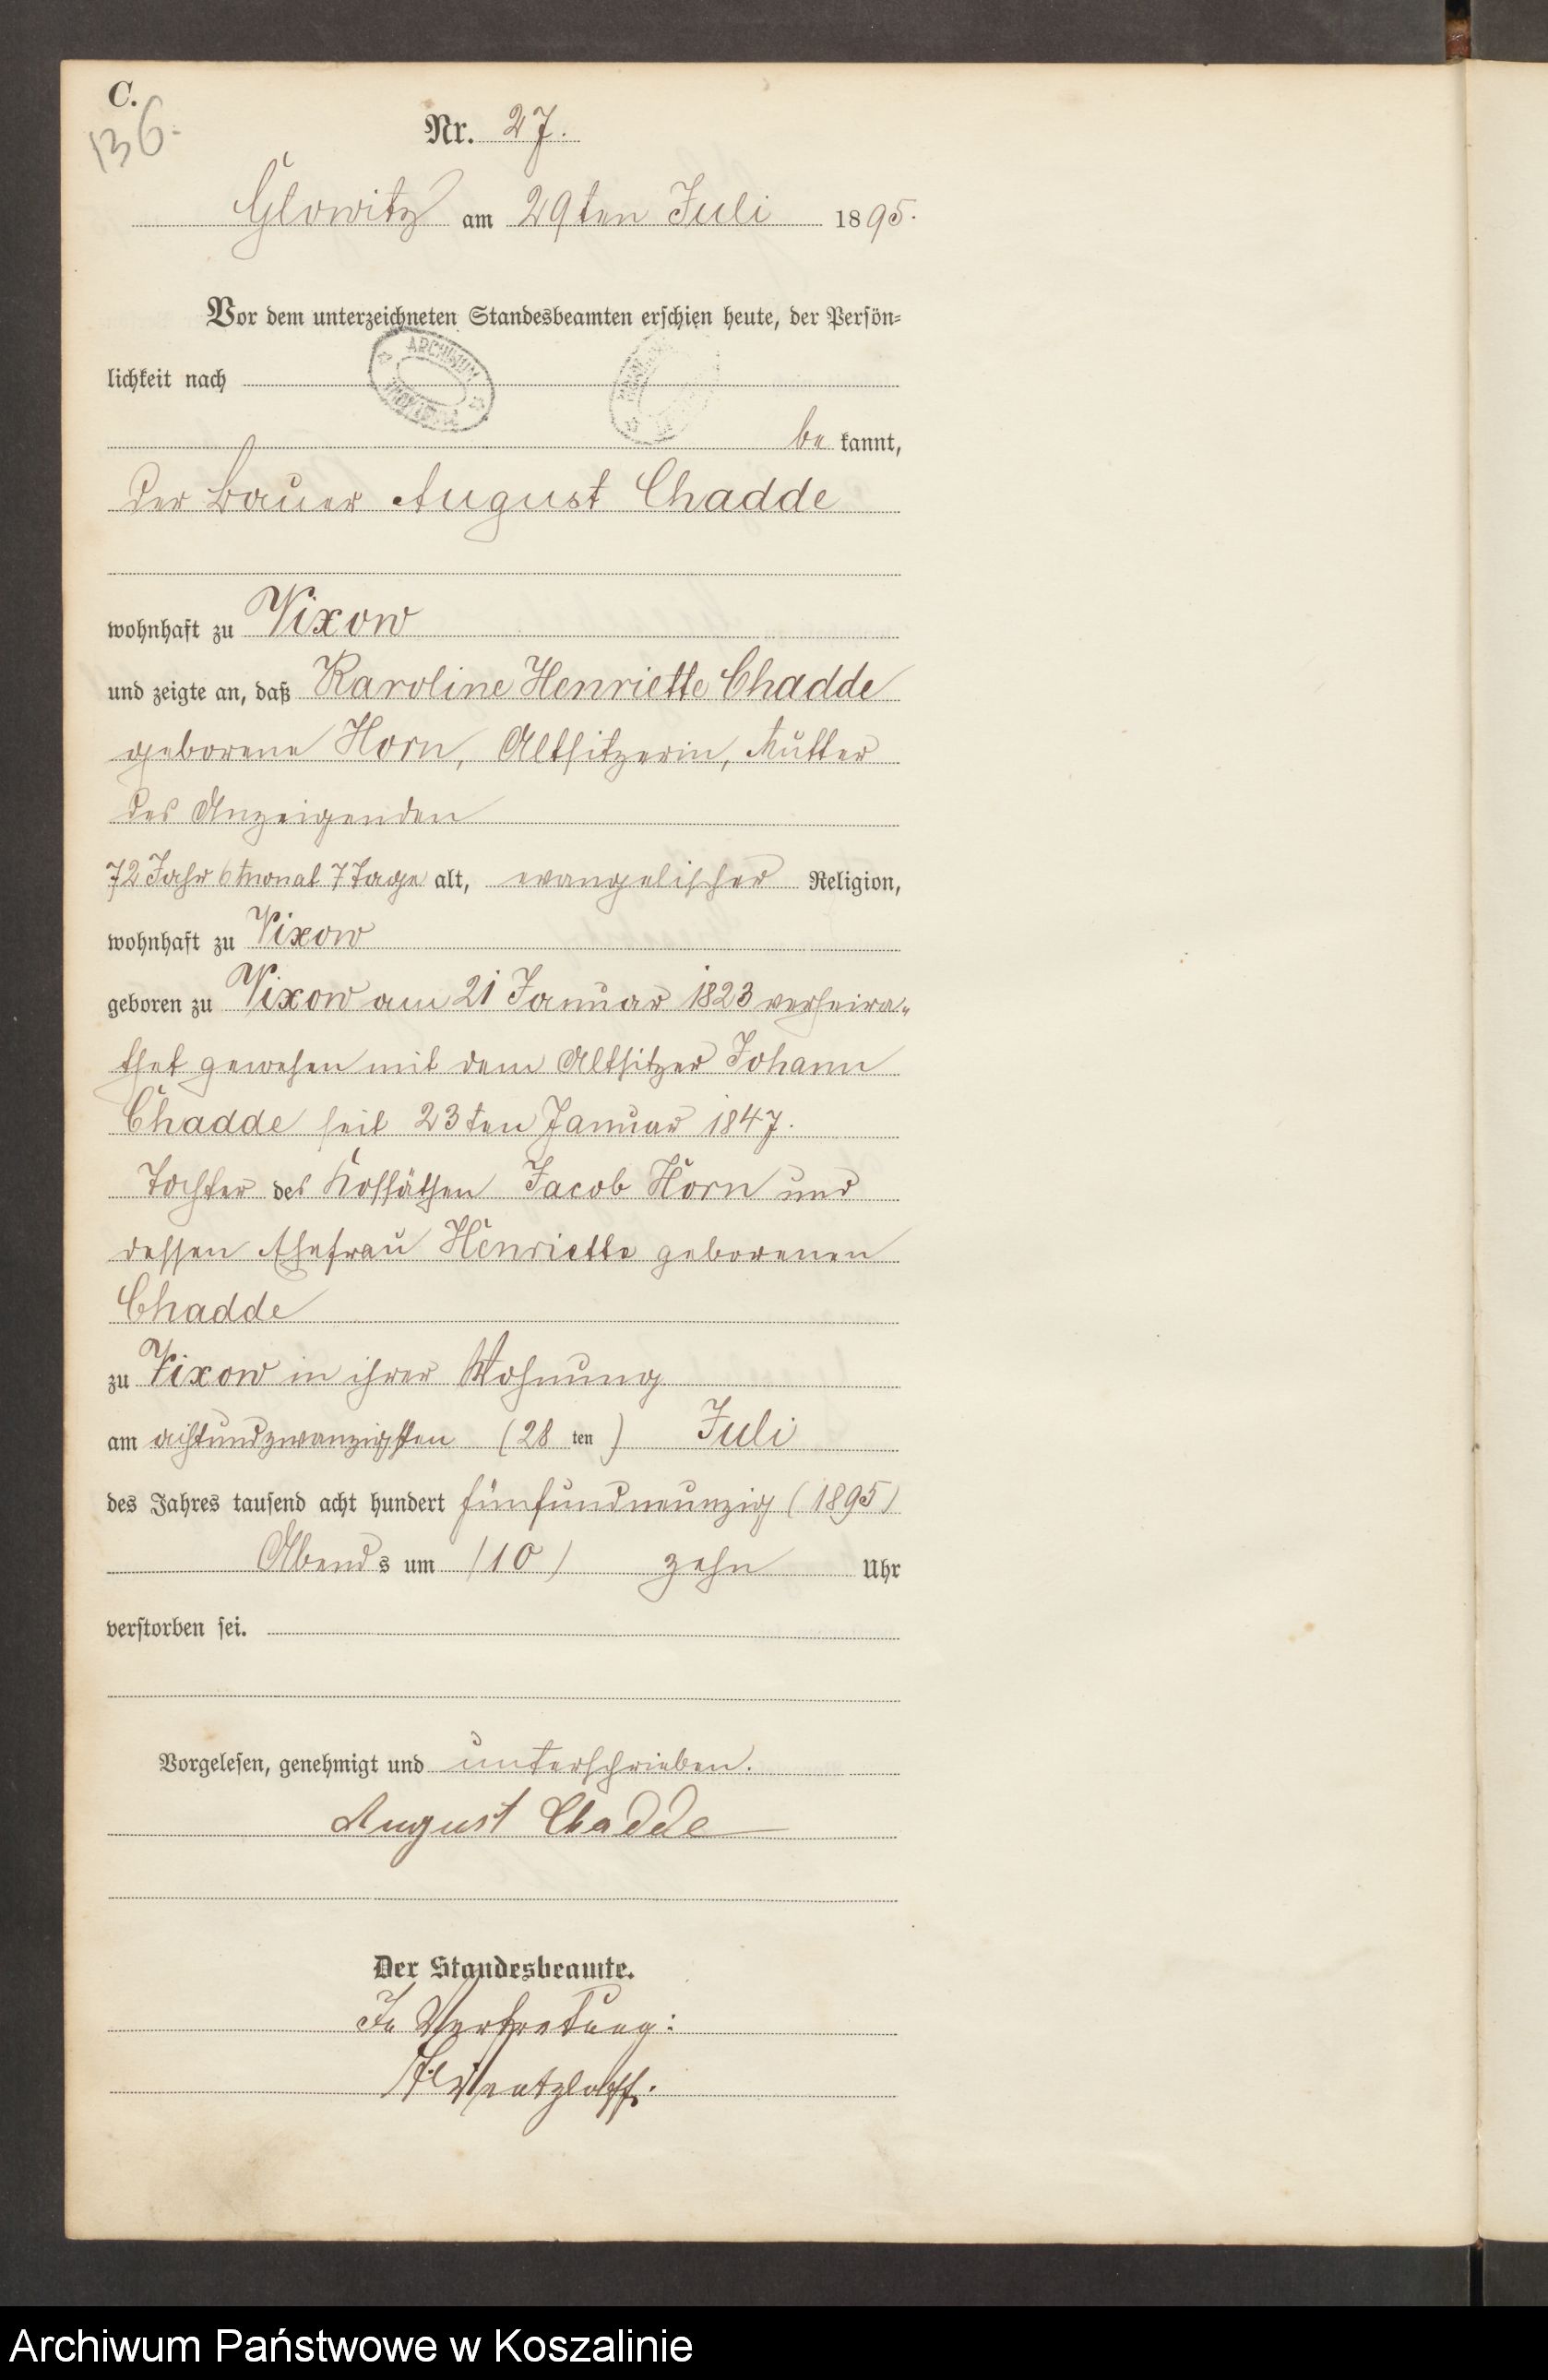 C.
136.
Nr. 27.
Glowitz am 29ten Juli 1895.
Vor dem unterzeichneten Standesbeamten erschien heute, der Persön-
lichkeit nach
ARCHIWUM
be kannt,
der Bauer August Chadde
wohnhaft zu Vixow
und zeigte an, daß Karoline Henriette Chadde
geborene Horn, Altsitzerin, Mutter
des Anzeigenden
72 Jahr 6 Monat 7 Tage alt, evangelischer Religion,
wohnhaft zu Vixow
geboren zu Vixow am 21 Januar 1823 verheira-
thet gewesen mit dem Altsitzer Johann
Chadde seit 23ten Januar 1847.
Tochter des Kossäthen Jacob Horn und
dessen Ehefrau Henriette geborenen
Chadde
zu Vixow in ihrer Wohnung
am achtundzwanzigsten (28 ten) Juli
des Jahres tausend acht hundert fünfundneunzig (1895)
Abends um (10) zehn Uhr
verstorben sei.
Vorgelesen, genehmigt und unterschrieben.
August Chadde
Der Standesbeamte.
In Vertretung:
Archiwum Państwowe w Koszalinie